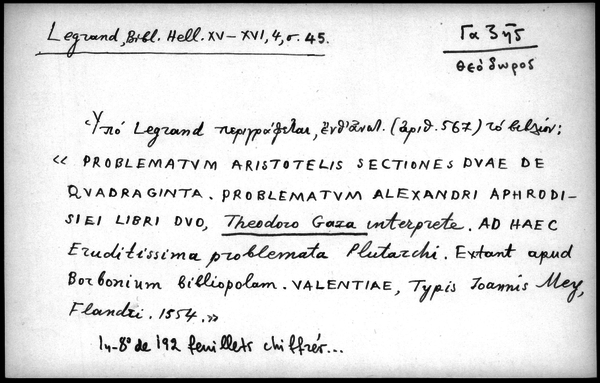 Legrand, Bibl. Hell. XV–XVI, 4, σ. 45.
Γαζῆς
Θεόδωρος
Ὑπό Legrand περιγράφεται, ἔνθ' ἀνωτ. (ἀριθ. 567) τό βιβλίον:
« PROBLEMATVM ARISTOTELIS SECTIONES DVAE DE
QVADRAGINTA. PROBLEMATVM ALEXANDRI APHRODI-
SIEI LIBRI DVO, Theodoro Gaza interprete. AD HAEC
Eruditissima problemata Plutarchi. Extant apud
Borbonium bibliopolam. VALENTIAE, Typis Joannis Mey,
Flandri. 1554.»
In-8° de 192 feuillets chiffrés...